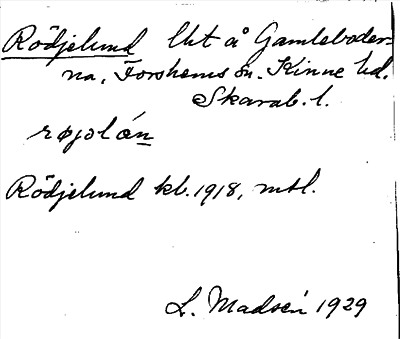 Rödjelund lht å Gamleboder-
na, Forshems sn. Kinne hd.
Skarab. l.
røjolán
Rödjelund kb. 1918, mtl.
L. Madsén 1929